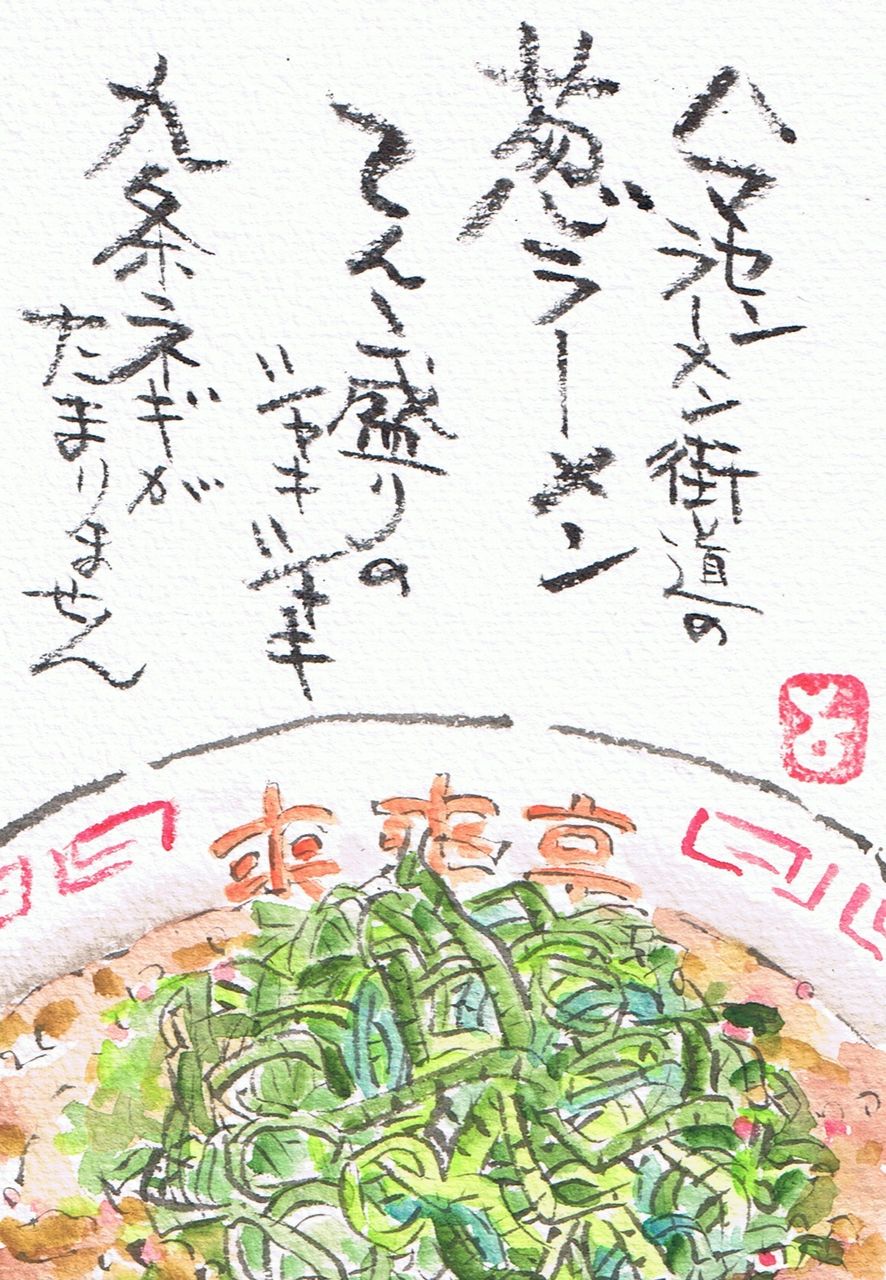 ハマセン
ラーメン街道の
葱ラーメン
てんこ盛りの
シャキシャキ
九条ネギが
たまりません
来来亭
よ